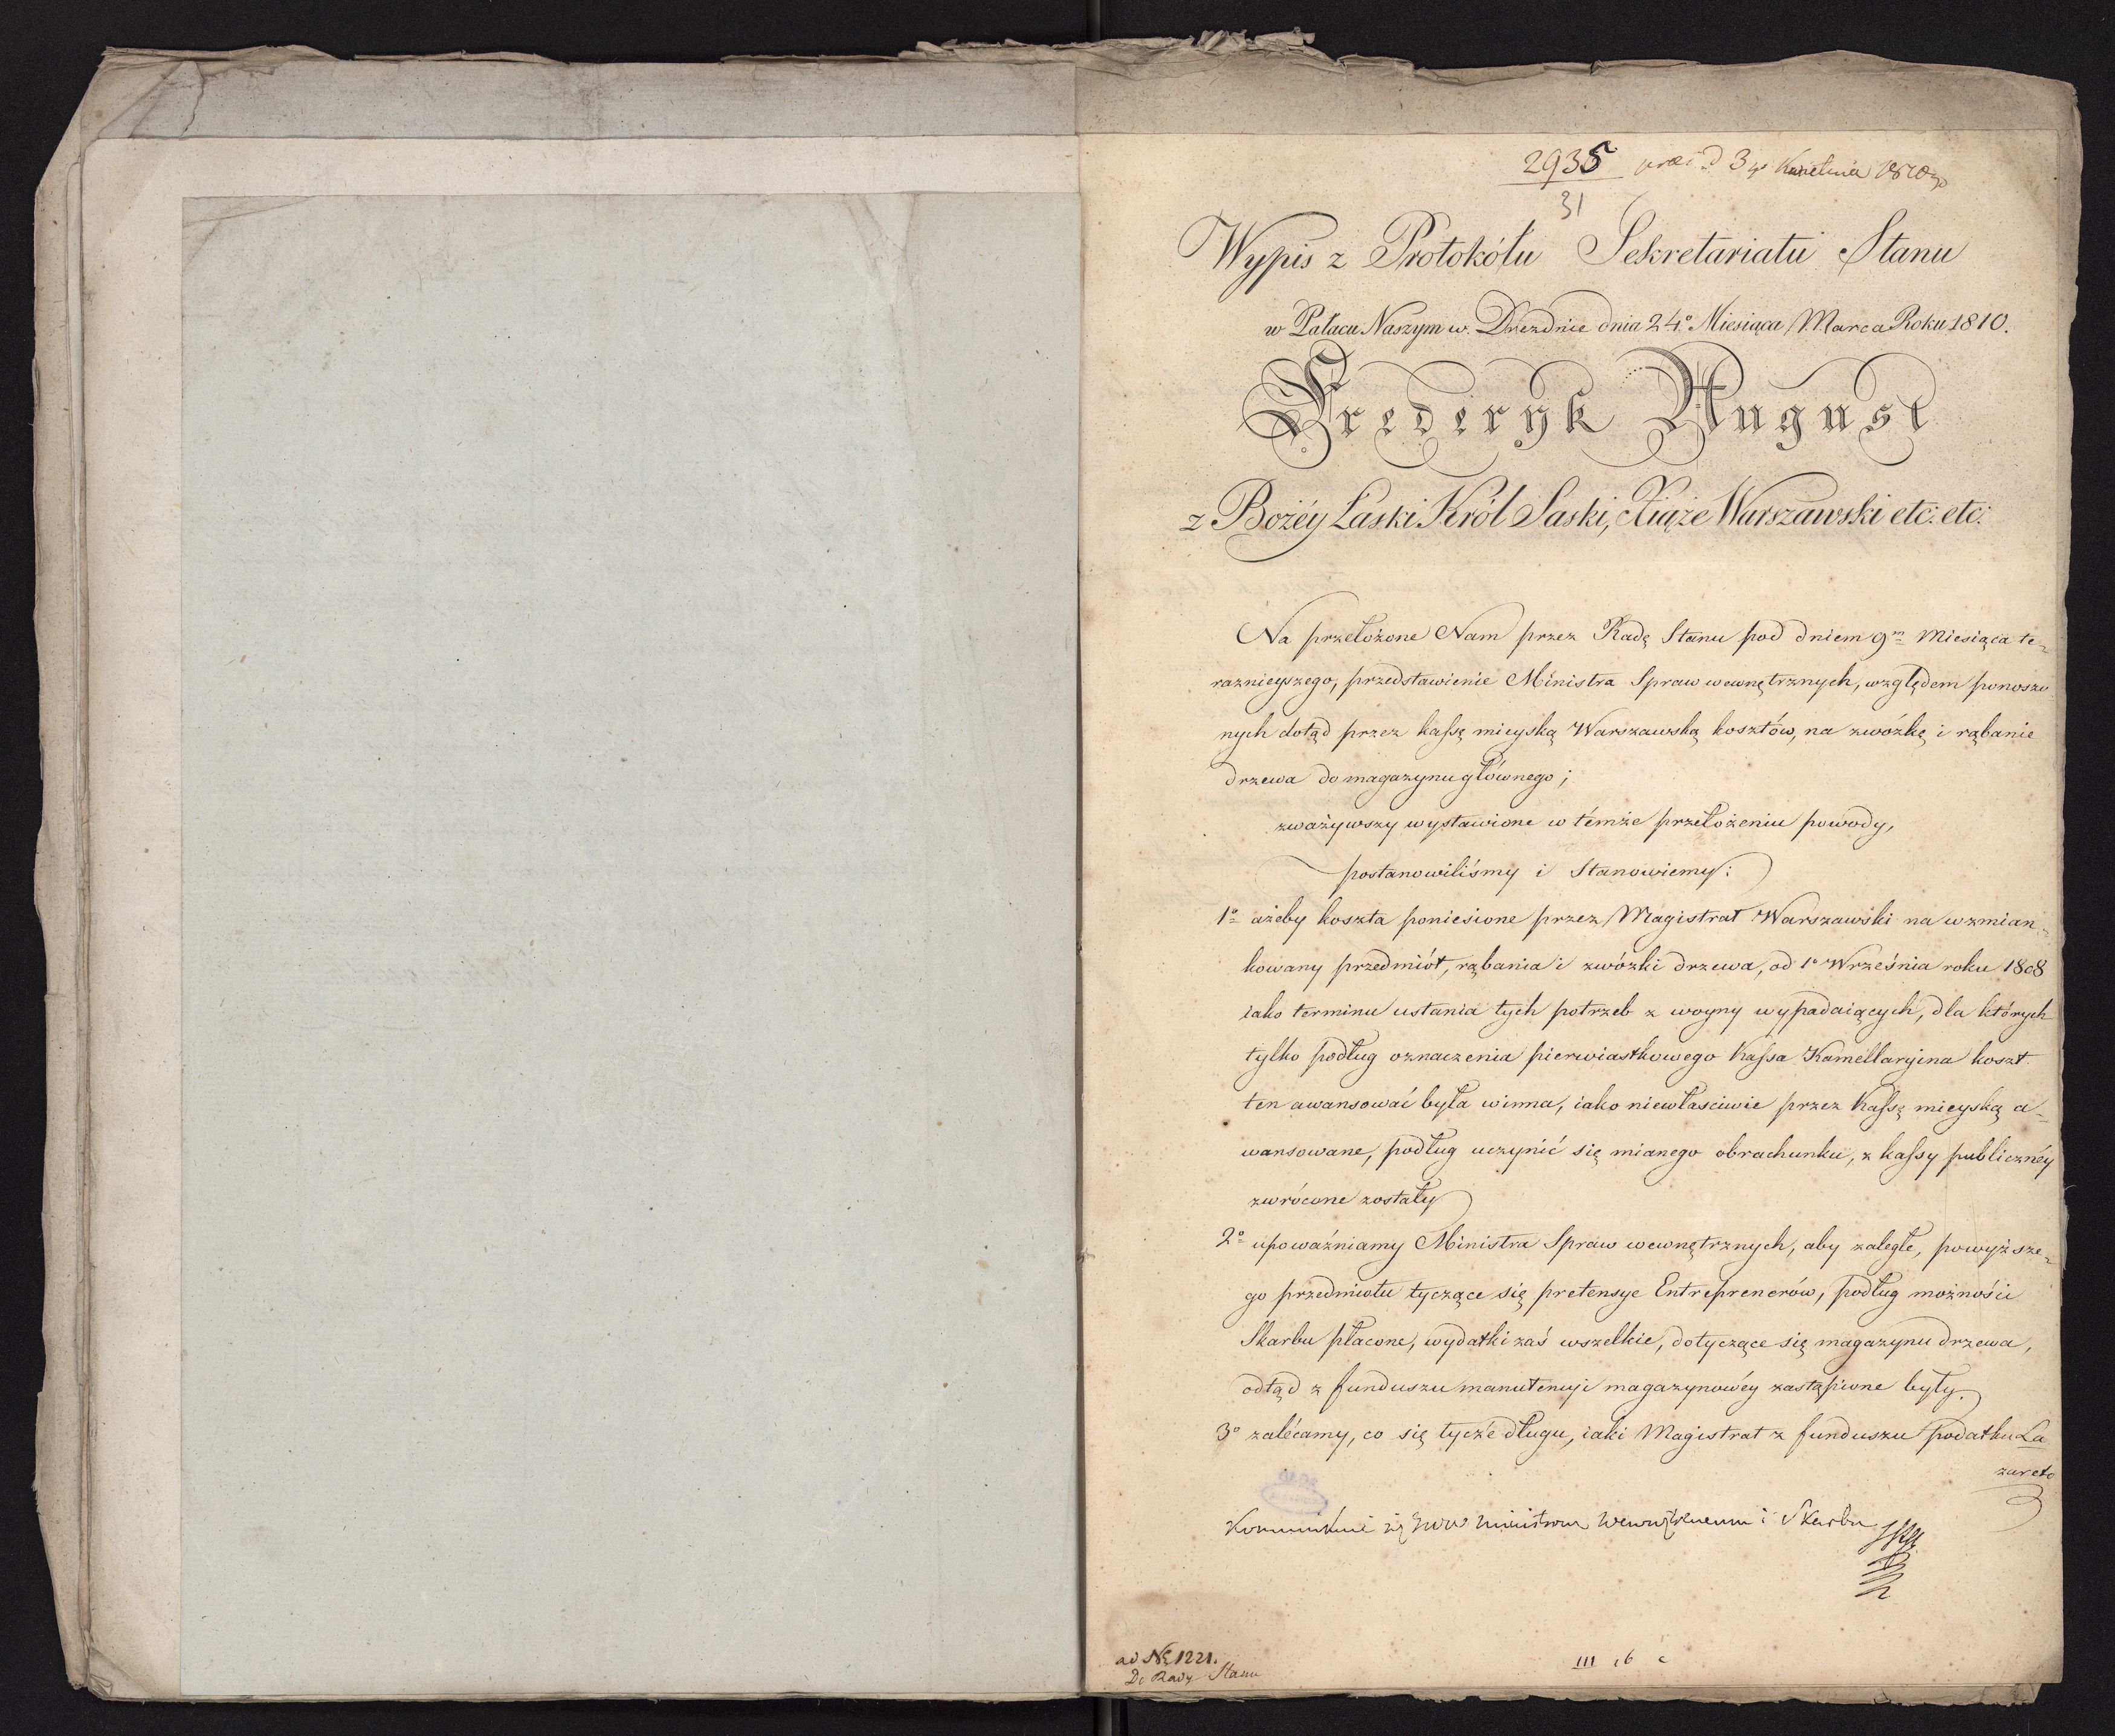 2935 præs d 3go Kwietnia 1810go
31
Wypis z Protokółu Sekretariatu Stanu
w Pałacu Naszym w Dreznie dnia 24o Miesiąca Marca Roku 1810.
Frederyk August
z Bożéy Łaski Król Saski, Xiąże Warszawski etc: etc:
Na przełożone Nam przez Radę Stanu pod dniem 9m Miesiąca te=
raznieyszego, przedstawienie Ministra Spraw wewnętrznych, względem ponoszo
nych dotąd przez kassę mieyską Warszawską kosztów, na zwózkę i rąbanie
drzewa do magazynu głównego;
zważywszy wystawione w témże przełożeniu powody,
postanowiliśmy i Stanowiemy:
1o ażeby koszta poniesione przez Magistrat Warszawski na wzmian=
kowany przedmiót, rąbania i zwózki drzewa, od 1o Września roku 1808
iako terminu ustania tych potrzeb z woyny wypadaiących, dla których
tylko podług oznaczenia pierwiastkowego Kassa Kamellaryina koszt
ten awansować była winna, iako niewłasciwie przez Kassę mieyską a=
wansowane, podług uczynić się mianego obrachunku, z kassy publicznéy
zwrócone zostały
2o upoważniamy Ministra Spraw wewnętrznych, aby zaległe, powyższe=
go przedmiotu tyczące się pretensye Entreprenerów, podług możności
Skarbu płacone, wydatki zaś wszelkie, dotyczące się magazynu drzewa,
odtąd z funduszu manutencyi magazynowéy zastąpione były.
3o zalécamy, co się tycźe długu, iaki Magistrat z funduszu podatku La
zareto
Ministrom Wewnętrznemu i Skarbu
ad No 1221.
Do Rady Stanu
III 16 c